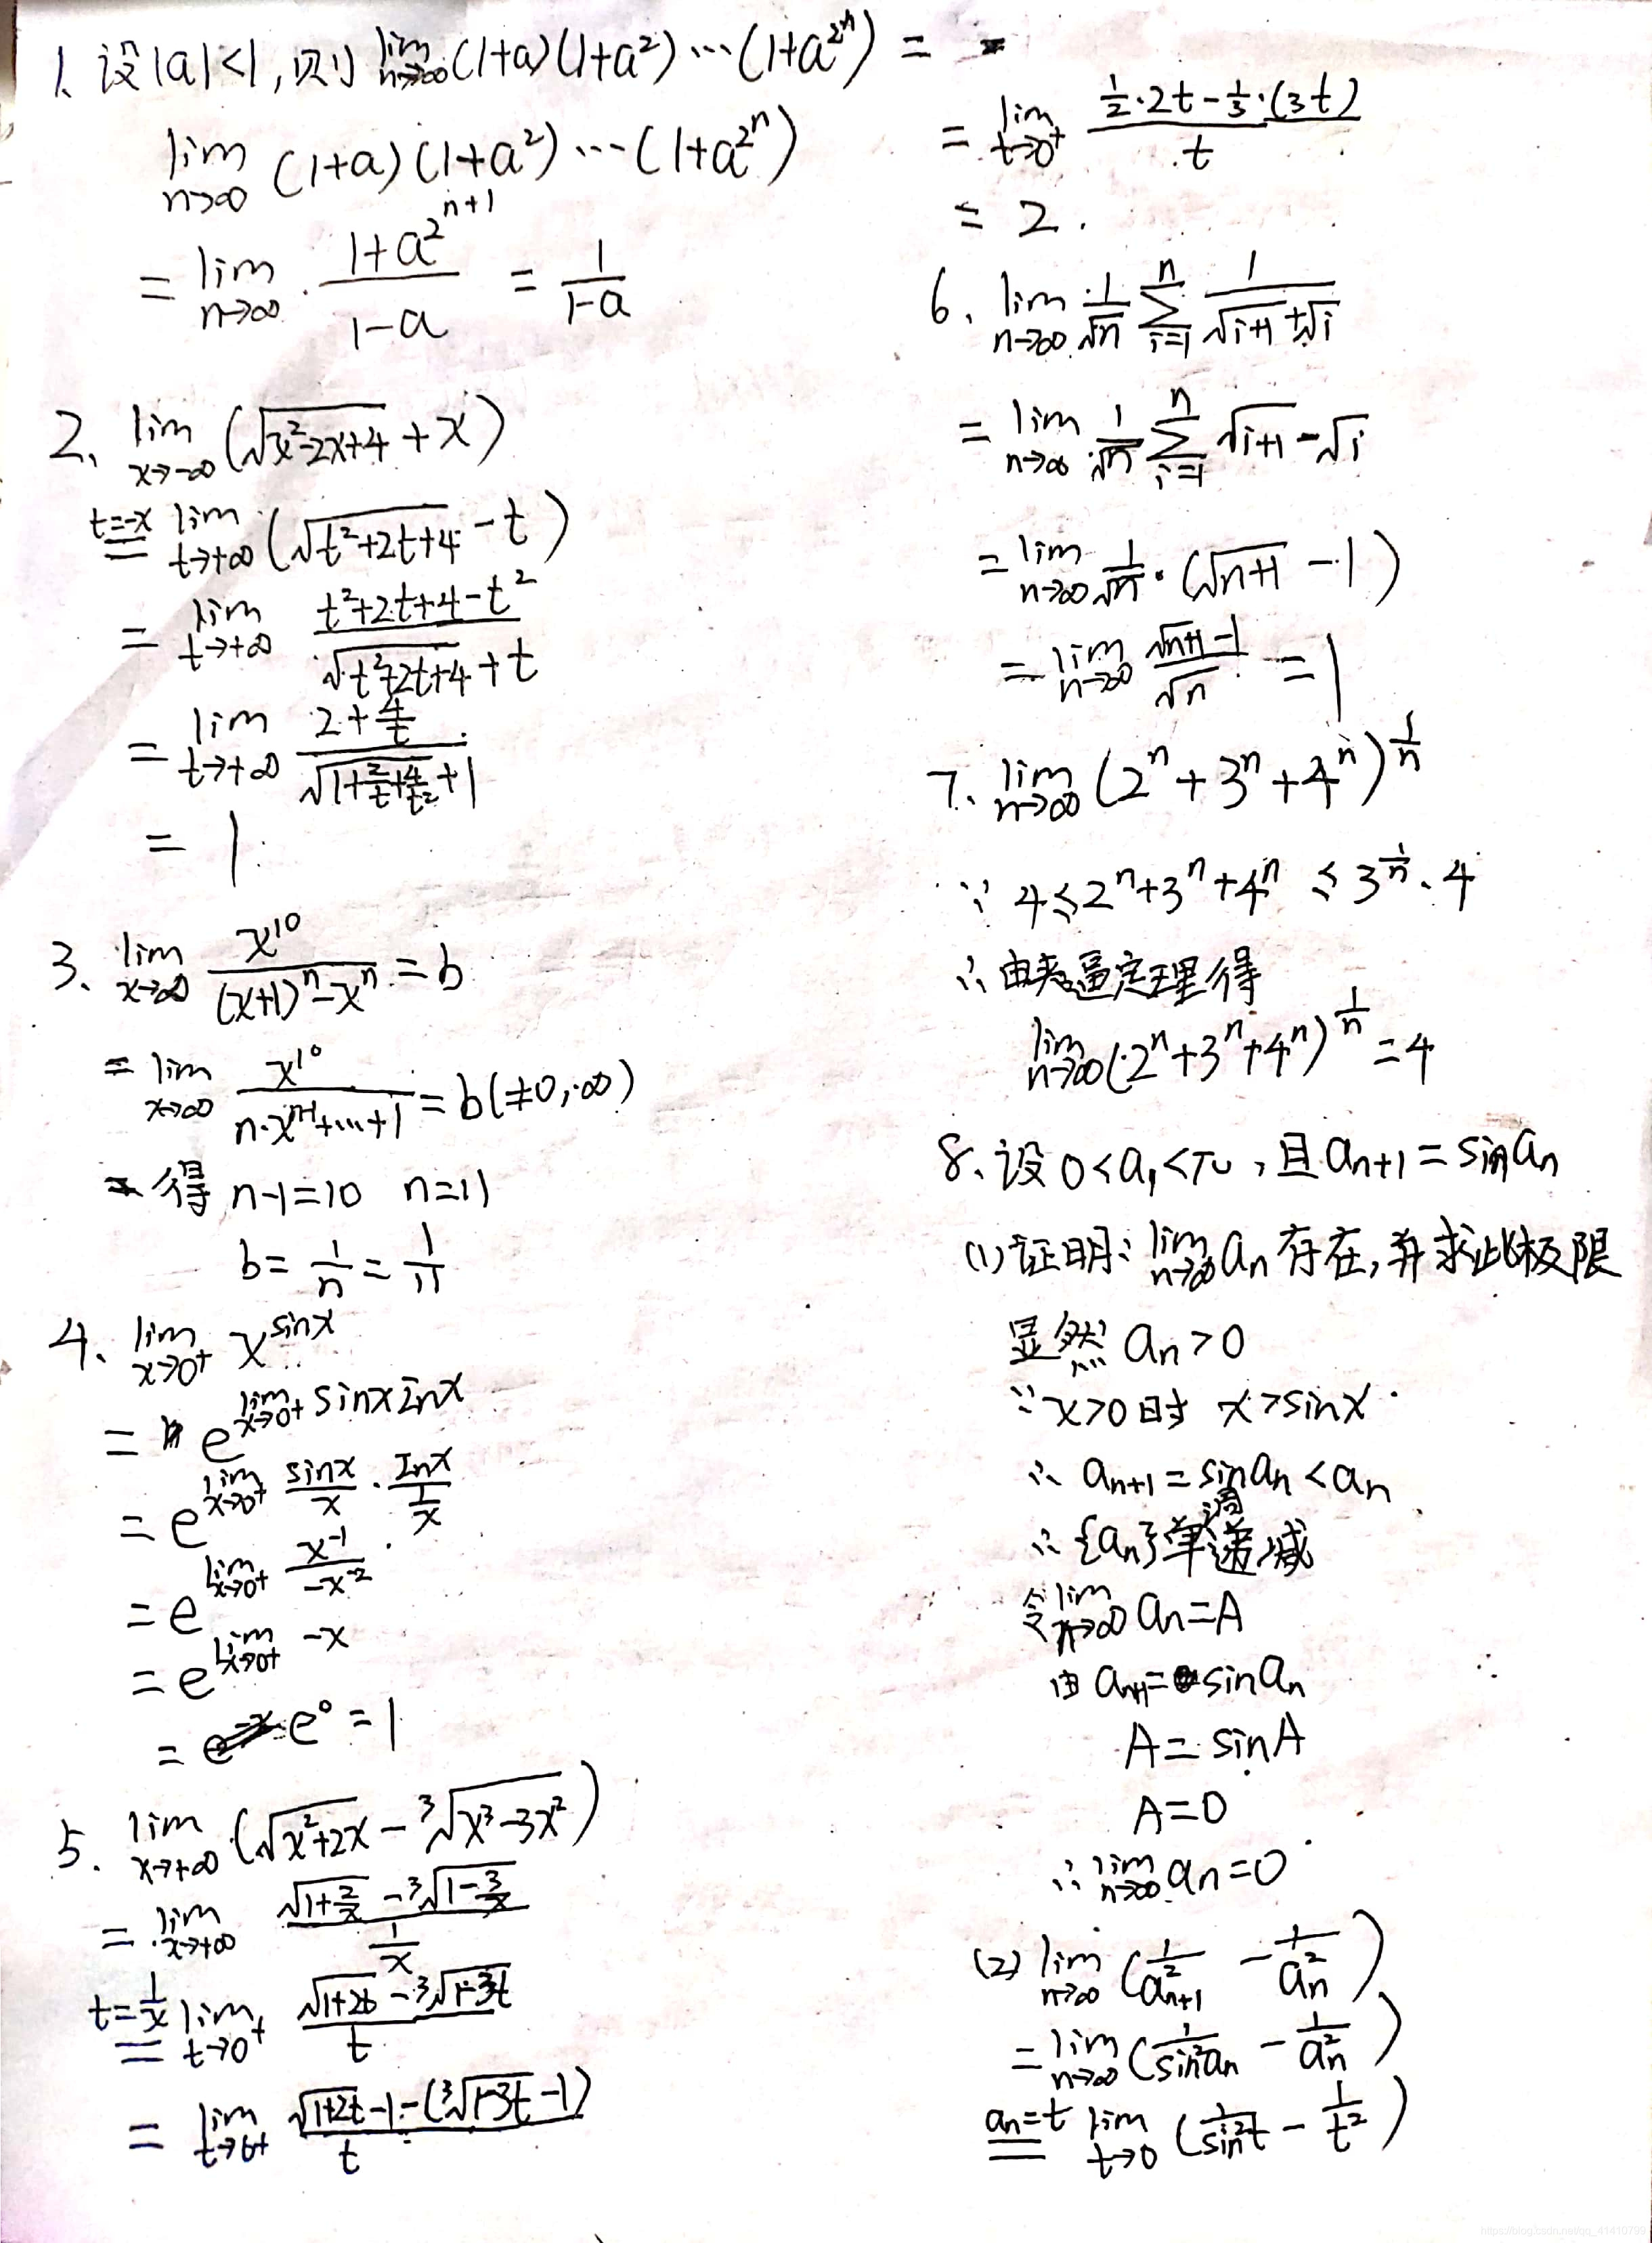 1、设|a|<1,则 lim n→∞ (1+a)(1+a²)…(1+a^{2^n}) =
lim n→∞ (1+a)(1+a²)…(1+a^{2^n})
= lim n→∞ (1+a^{2^{n+1}})/(1-a) = 1/(1-a)
2、lim x→-∞ (√(x²-2x+4) + x)
t=-x = lim t→+∞ (√(t²+2t+4) - t)
= lim t→+∞ (t²+2t+4-t²)/(√(t²+2t+4) + t)
= lim t→+∞ (2+4/t)/(√(1+2/t+4/t²) + 1)
= 1
3、lim x→∞ x^{10}/((x+1)^n - x^n) = b
= lim x→∞ x^{10}/(n·x^{n-1}+…+1) = b(≠0,∞)
得 n-1=10 n=11
b = 1/n = 1/11
4、lim x→0+ x^{sinx}
= e^{lim x→0+ sinx lnx}
= e^{lim x→0+ sinx/x · lnx/(1/x)}
= e^{lim x→0+ x^{-1}/(-x^{-2})}
= e^{lim x→0+ -x}
= e^0 = 1
5. lim x→+∞ (√(x²+2x) - ³√(x³-3x²))
= lim x→+∞ (√(1+2/x) - ³√(1-3/x))/(1/x)
t=1/x = lim t→0+ (√(1+2t) - ³√(1-3t))/t
= lim t→0+ (√(1+2t)-1-(³√(1-3t)-1))/t
= lim t→0+ (1/2·2t - 1/3·(3t))/t
= 2.
6、lim n→∞ 1/√n ∑_{i=1}^{n} 1/(√(i+1)+√i)
= lim n→∞ 1/√n ∑_{i=1}^{n} √(i+1) - √i
= lim n→∞ 1/√n · (√(n+1) - 1)
= lim n→∞ (√(n+1)-1)/√n = 1
7、lim n→∞ (2^n+3^n+4^n)^{1/n}
∵ 4≤2^n+3^n+4^n ≤ 3^{1/n}·4
∴ 由夹逼定理得
lim n→∞ (2^n+3^n+4^n)^{1/n} = 4
8、设 0<a₁<π,且 a_{n+1} = sin a_n
(1) 证明: lim n→∞ a_n 存在,并求此极限
显然 a_n>0
∵ x>0时 x>sinx
∴ a_{n+1} = sin a_n < a_n
∴ {a_n}单调递减
令 lim n→∞ a_n = A
由 a_{n+1} = sin a_n
A = sinA
A=0
∴ lim n→∞ a_n = 0
(2) lim n→∞ (1/a²_{n+1} - 1/a²_n)
= lim n→∞ (1/sin²a_n - 1/a²_n)
a_n=t = lim t→0 (1/sin²t - 1/t²)